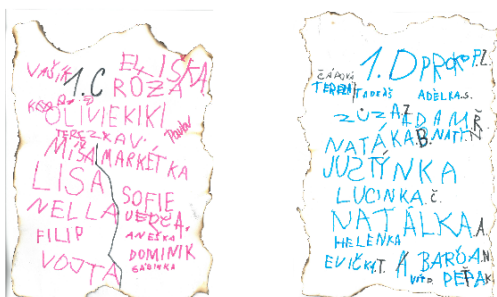 ELIŠKA
VAŠÍK 1.C RÓZA
OLIVIE KIKI
TEREZKA V. Pavel
MÍŠA MARKÉTKA
LISA
SOFIE
NELLA
ANEŽKA
FILIP DOMINIK
VOJTA
1.D PROKOP.Z.
ČÁPOVÁ
TEREZA TADEÁŠ ADÉLKA.S.
ZUZA ADAM Ř
NATÁKA.B. NATI.N
JUSTÝNKA
LUCINKA.Č.
NATÁLKA.A.
HELENKA
EVIČKY.T. A BARČA.N
VÍT.D. PEŤA.K